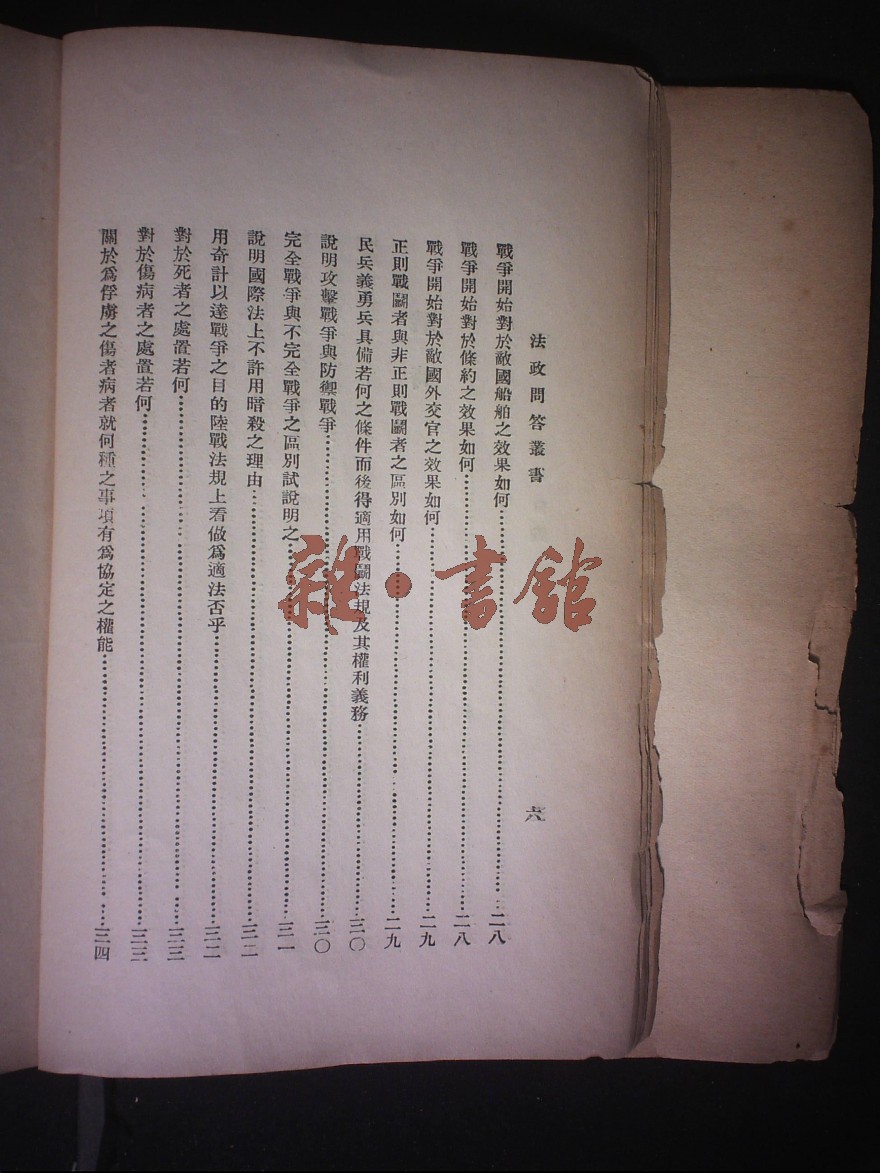 法政問答叢書
六八
戰爭開始對於敵國船舶之效果如何……二八
戰爭開始對於條約之效果如何……二八
戰爭開始對於敵國外交官之效果如何……二九
正則戰鬭者與非正則戰鬭者之區別如何……二九
民兵義勇兵具備若何之條件而後得適用戰鬭法規及其權利義務……三〇
說明攻擊戰爭與防禦戰爭……三〇
完全戰爭與不完全戰爭之區別試說明之……三一
說明國際法上不許用暗殺之理由……三二
用奇計以達戰爭之目的陸戰法規上看做爲適法否乎……三二
對於死者之處置若何……三三
對於傷病者之處置若何……三三
關於爲俘虜之傷者病者就何種之事項有爲協定之權能……三四
雜·書館